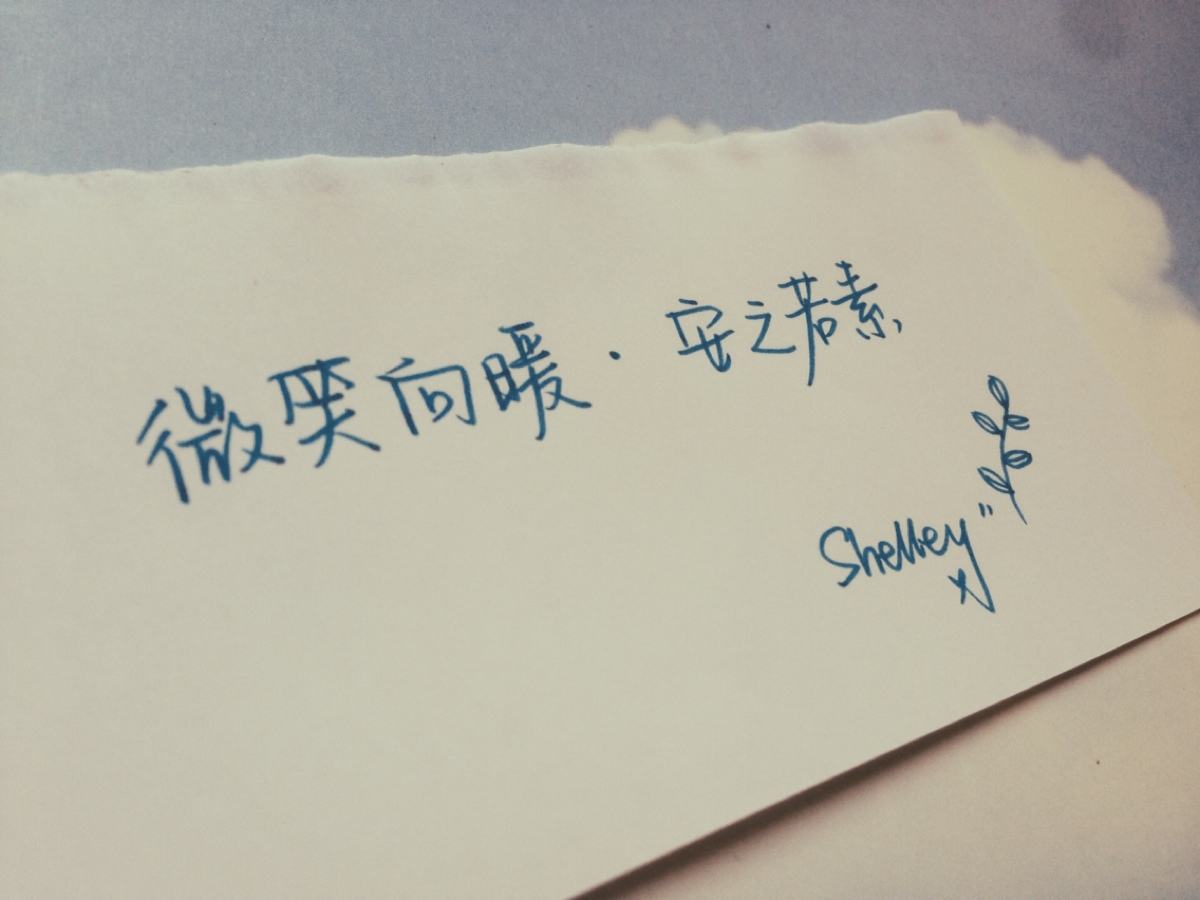 微笑向暖·安之若素
Shelley"